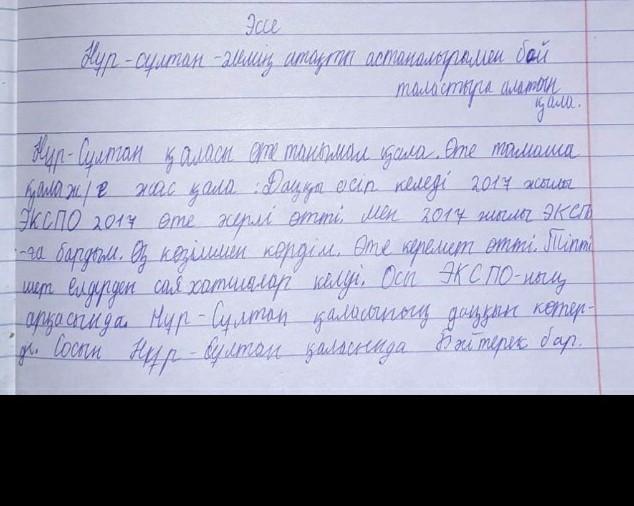 Эссе
Нұр-сұлтан - әлемнің атақты астаналырымен бой
таластыра алатын
қала.
Нұр-Сұлтан қаласы өте танымал қала. Өте тамаша
қала ж/е жас қала. Даңқы өсіп келеді 2017 жылы
ЭКСПО 2017 өте жерлі өтті. Мен 2017 жылы ЭКСП
-ға бардым. Өз көзіммен көрдім. Өте керемет өтті. Тіпті
шет елдерден саяхатшалар келді. Осы ЭКСПО-ның
арқасында. Нұр-Сұлтан қаласының даңқын көтер-
ді. Сосын Нұр-Сұлтан қаласында Бәйтерек бар.